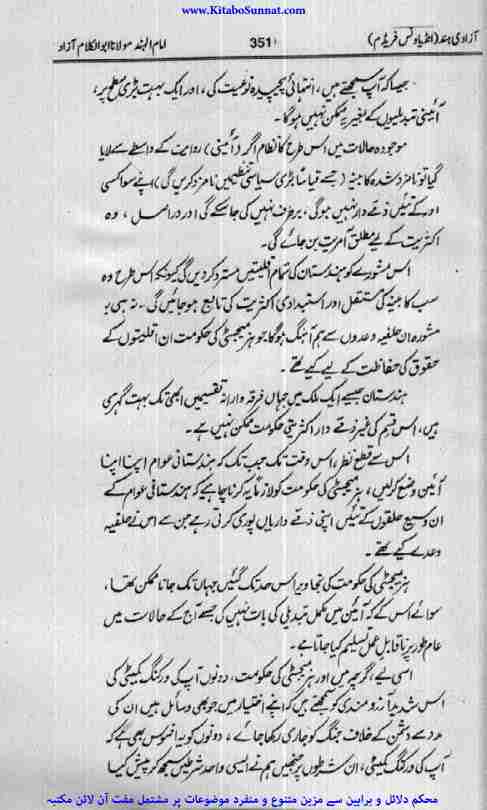 www.KitaboSunnat.com
آزادیٔ ہند (انڈیا ونس فریڈم)
351
امام الہند مولانا ابوالکلام آزاد
جیسا کہ آپ سمجھتے ہیں، انتہائی پیچیدہ نوعیت کی، اور ایک بہت بڑی سطح پر،
آئینی تبدیلیوں کے بغیر یہ ممکن نہیں ہوگا۔
موجودہ حالات میں اس طرح کا نظام اگر (آئینی) روایت کے واسطے سے لایا
گیا تو نامزد شدہ کابینہ (جسے قیاساً بڑی سیاسی تنظیمیں نامزد کریں گی) اپنے سوا کسی
اور کے تئیں ذمے دار نہیں ہوگی، برطرف نہیں کی جا سکے گی اور دراصل، وہ
اکثریت کے لیے مطلق آمریت بن جائے گی۔
اس مشورے کو ہندستان کی تمام اقلیتیں مسترد کر دیں گی کیونکہ اس طرح وہ
سب کابینہ کی مستقل اور استبدادی اکثریت کی تابع ہو جائیں گی۔ نہ ہی یہ
مشورہ ان حلفیہ وعدوں سے ہم آہنگ ہوگا جو ہز میجسٹی کی حکومت ان اقلیتوں کے
حقوق کی حفاظت کے لیے کیے تھے۔
ہندستان جیسے ایک ملک میں جہاں فرقہ وارانہ تقسیمیں ابھی تک بہت گہری
ہیں، اس قسم کی غیر ذمے دار اکثریتی حکومت ممکن نہیں ہے۔
اس سے قطع نظر، اس وقت تک جب تک کہ ہندستانی عوام اپنا اپنا
آئین وضع کر لیں، ہز میجسٹی کی حکومت کو لازماً یہ کرنا چاہیے کہ ہندستانی عوام کے
ان وسیع حلقوں کے تئیں اپنی ذمے داریاں پوری کرتی رہے جن سے اس نے حلفیہ
وعدے کیے تھے۔
ہز میجسٹی کی حکومت کی تجاویز اس حد تک گئیں جہاں تک جانا ممکن تھا،
سوائے اس کے کہ آئین میں مکمل تبدیلی کی بات نہیں کی جسے آج کے حالات میں
عام طور پر ناقابل عمل تسلیم کیا جاتا ہے۔
اسی لیے، گرچہ میں اور ہز میجسٹی کی حکومت، دونوں آپ کی ورکنگ کمیٹی کی
اس شدید آرزومندی کو سمجھتے ہیں کہ اپنے اختیار میں جو بھی وسائل ہیں ان کی
مدد سے دشمن کے خلاف جنگ کو جاری رکھا جائے، دونوں کو یہ افسوس بھی ہے کہ
آپ کی ورکنگ کمیٹی، ان شرطوں پر جنہیں ہم نے ایسی واحد شرطیں سمجھ کر پیش کیا
محکم دلائل و براہین سے مزین متنوع و منفرد موضوعات پر مشتمل مفت آن لائن مکتبہ